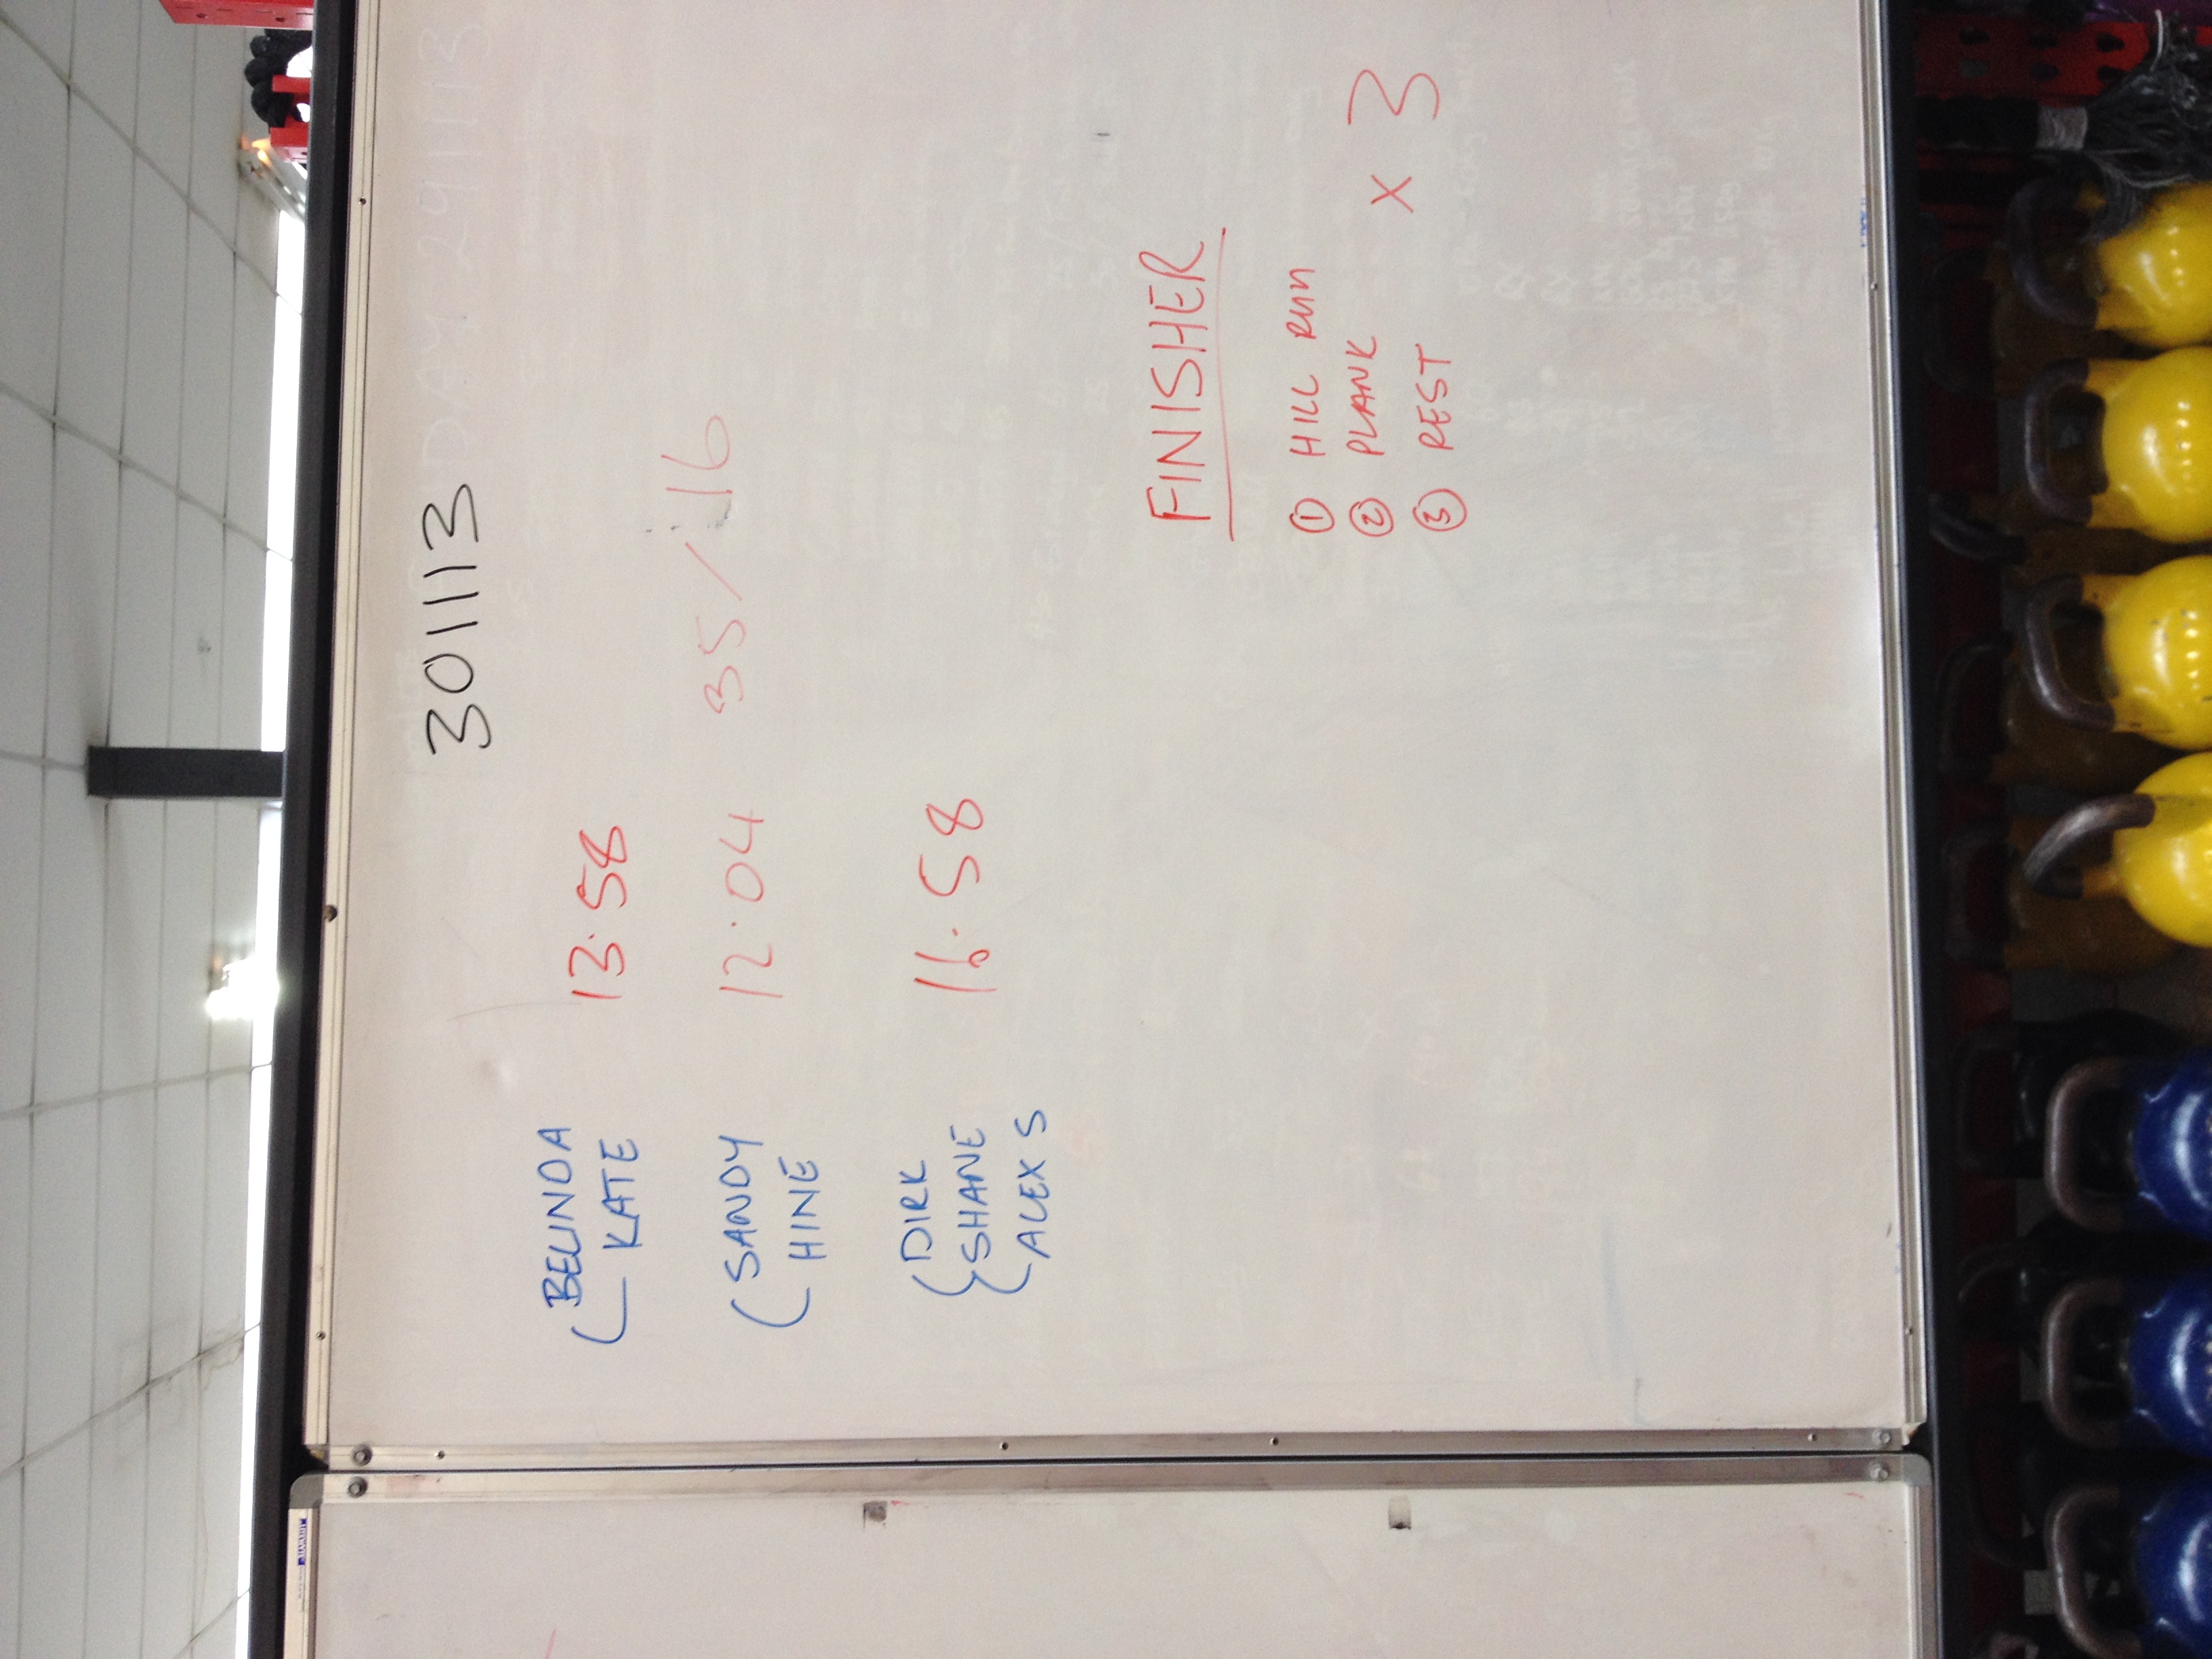 301113
BELINDA
KATE 13.58
SANDY 12.04 35/16
HINE
DIRK
SHANE 16.58
ALEX S
FINISHER
① HILL RUN
② PLANK x 3
③ REST